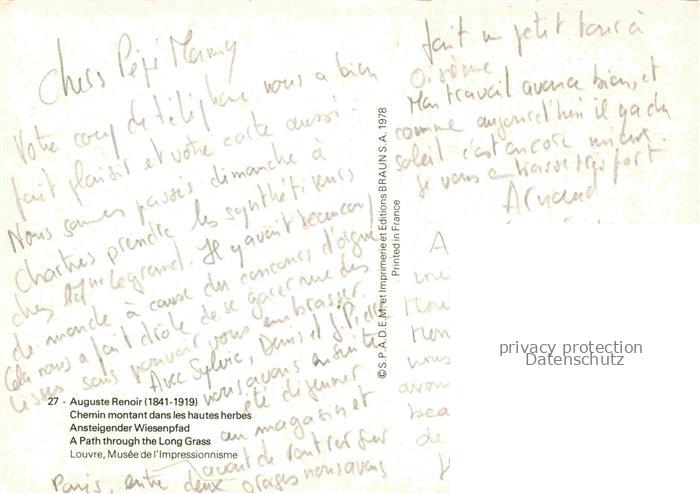 Chers Pépé Mamy
Votre coup de téléphone nous a bien
fait plaisir et votre carte aussi.
Nous sommes passés dimanche à
Chartres prendre les synthétiseurs
chez Legrand. Il y avait beaucoup
de monde à cause du concours d'orgue
Cela nous a fait drôle de se garer rue des
Lisses sans pouvoir vous embrasser.
Avec Sylvie, Denis et J. Pierre
nous avons ensuite
été déjeuner
au magasin et
avant de rentrer sur
Paris, entre deux orages nous avons
fait un petit tour à
Oisème
Mon travail avance bien, et
comme aujourd'hui il y a du
soleil c'est encore mieux.
Je vous embrasse très fort
Arnaud
© S.P.A.D.E.M. et Imprimerie et Editions BRAUN S.A. 1978
Printed in France
27 - Auguste Renoir (1841-1919)
Chemin montant dans les hautes herbes
Ansteigender Wiesenpfad
A Path through the Long Grass
Louvre, Musée de l'Impressionnisme
privacy protection
Datenschutz